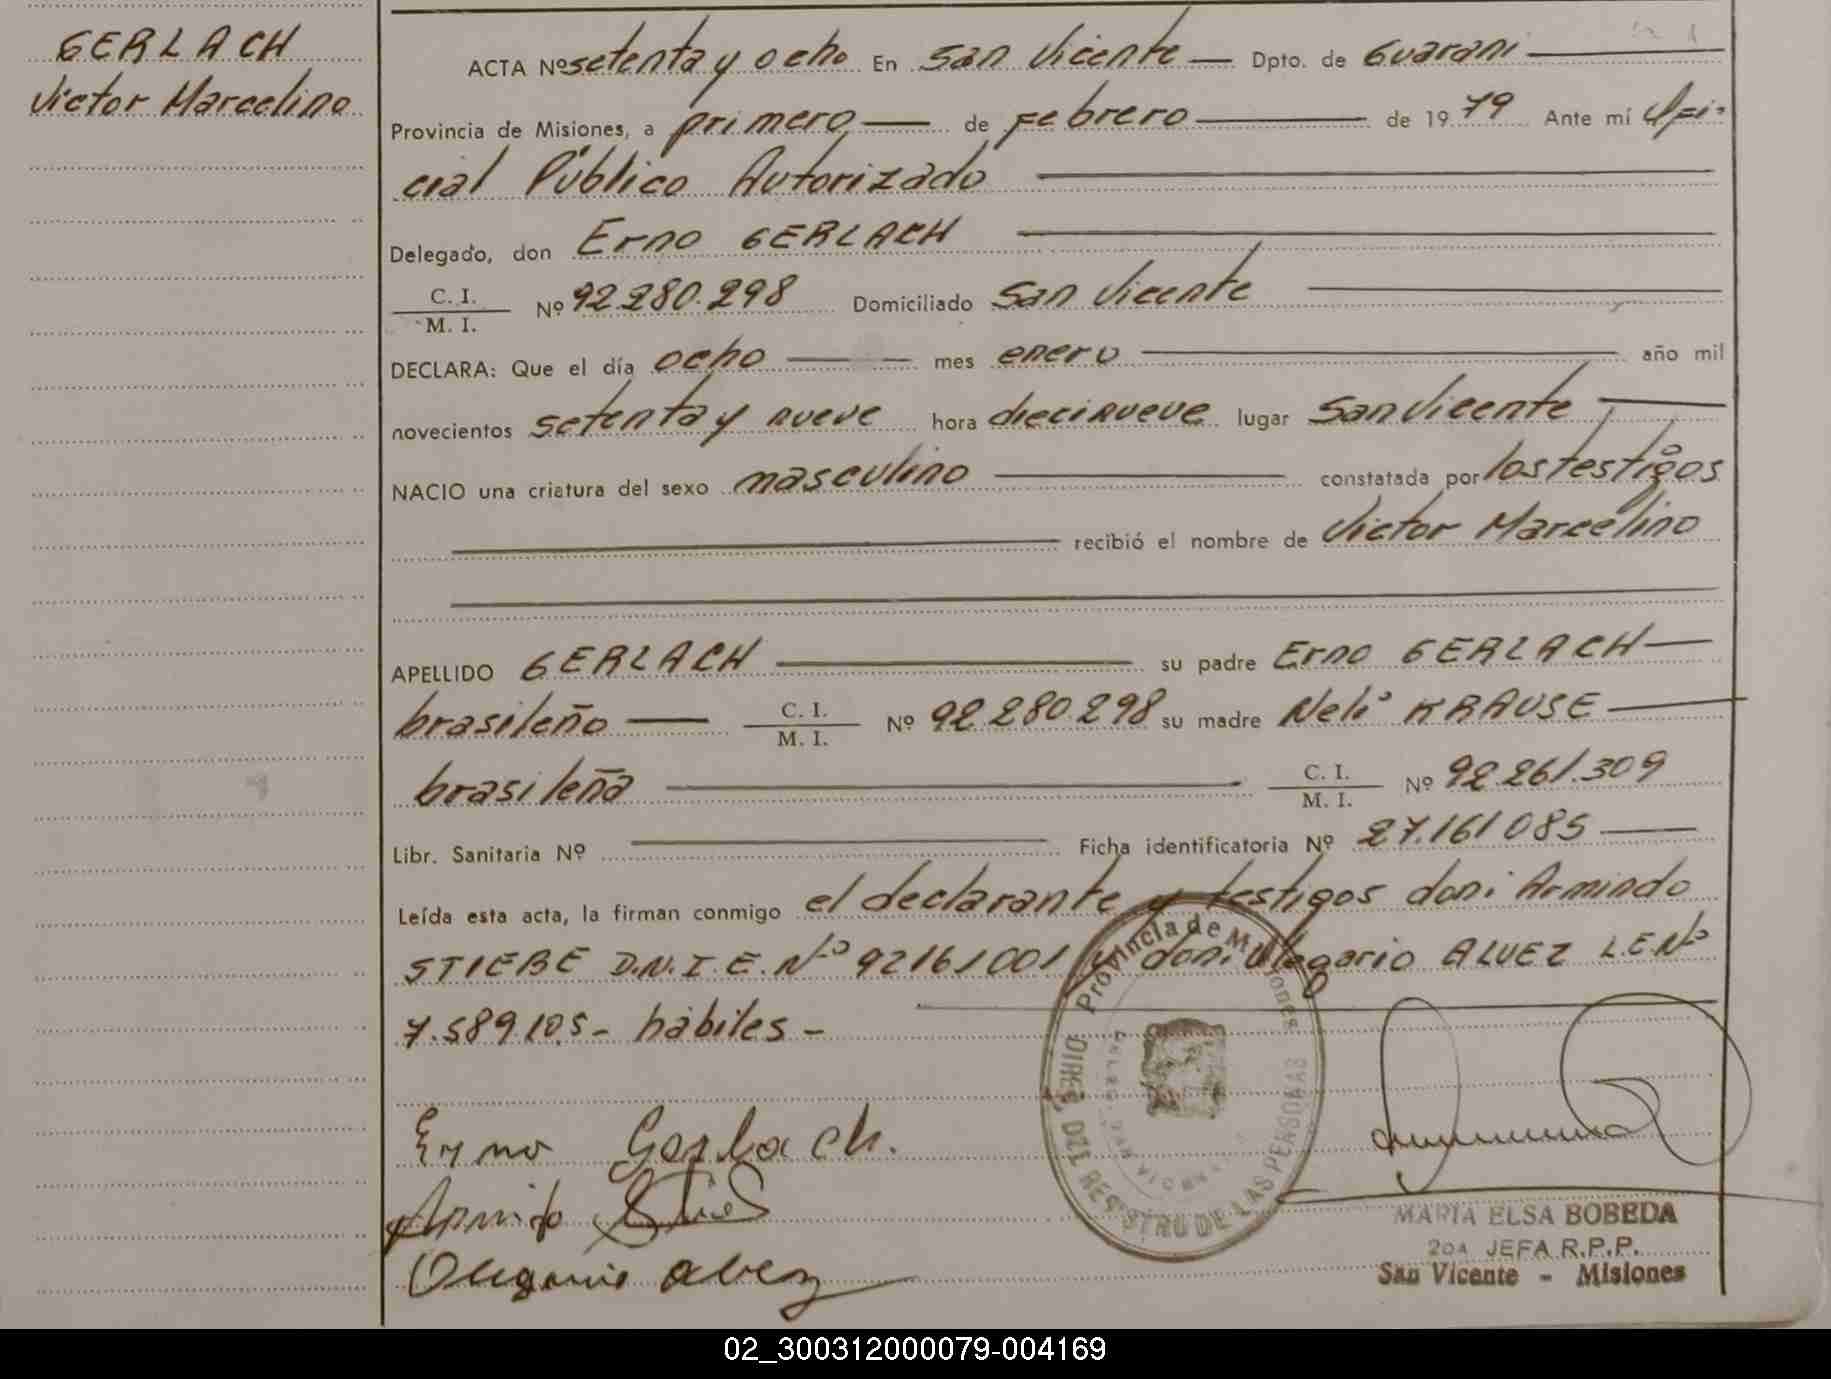 GERLACH
Victor Marcelino
ACTA Nº setenta y ocho En San Vicente — Dpto. de Guarani —
Provincia de Misiones, a primero — de Febrero — de 1979 Ante mí Ofi-
cial Público Autorizado —
Delegado, don Erno GERLACH —
C. I.
M. I. Nº 92.280.298 Domiciliado San Vicente —
DECLARA: Que el día ocho — mes enero — año mil
novecientos setenta y nueve hora diecinueve lugar San Vicente —
NACIO una criatura del sexo masculino — constatada por los testigos
— recibió el nombre de Victor Marcelino
—
APELLIDO GERLACH — su padre Erno GERLACH —
brasileño — C. I.
M. I. Nº 92.280.298 su madre Neli KRAUSE —
brasileña — C. I.
M. I. Nº 92.261.309
Libr. Sanitaria Nº — Ficha identificatoria Nº 27.161.085 —
Leída esta acta, la firman conmigo el declarante y testigos don: Armindo
STIEBE D.N.I.E. Nº 92161001 y don: Olegario ALVEZ L.E Nº
7.589.105 - hábiles -
Provincia de Misiones
DIREC. DEL REGISTRO DE LAS PERSONAS
Erno Gerlach.
Olegario Alvez
MARIA ELSA BOBEDA
2da JEFA R.P.P.
San Vicente - Misiones
02_300312000079-004169